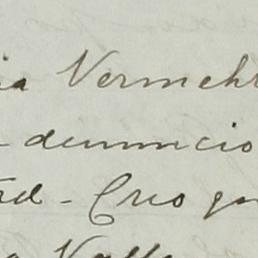 ia Vermeh
denuncio
td - Creo qu
a Valle